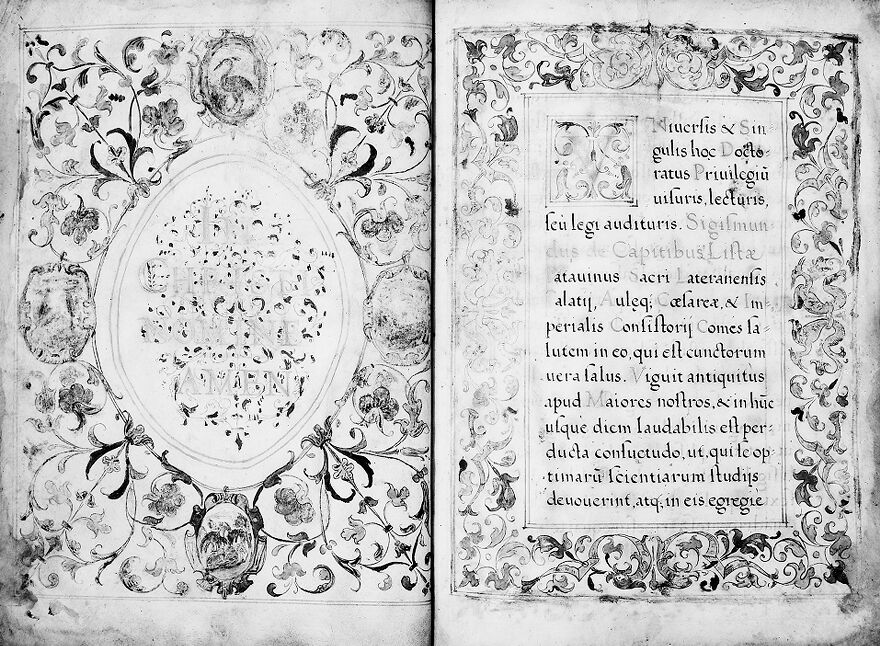 CHRIST
AMEN
Niuerſis & Sin=
gulis hoc Docto=
ratus Priuilegiū
uiſuris, lecturis,
ſeū legi audituris. Sigiſmun=
dus de Capitibus Liſtæ
atauinus Sacri Lateranenſis
alatij, Aulęq; Cæſareæ, & Im=
perialis Conſiſtorij Comes ſa=
lutem in eo, qui eſt cunctorum
uera ſalus. Viguit antiquitus
apud Maiores noſtros, & in hūc
uſque diem laudabilis eſt per=
ducta conſuetudo, ut, qui ſe op=
timarū ſcientiarum ſtudijs
deuouerint, atq; in eis egregie